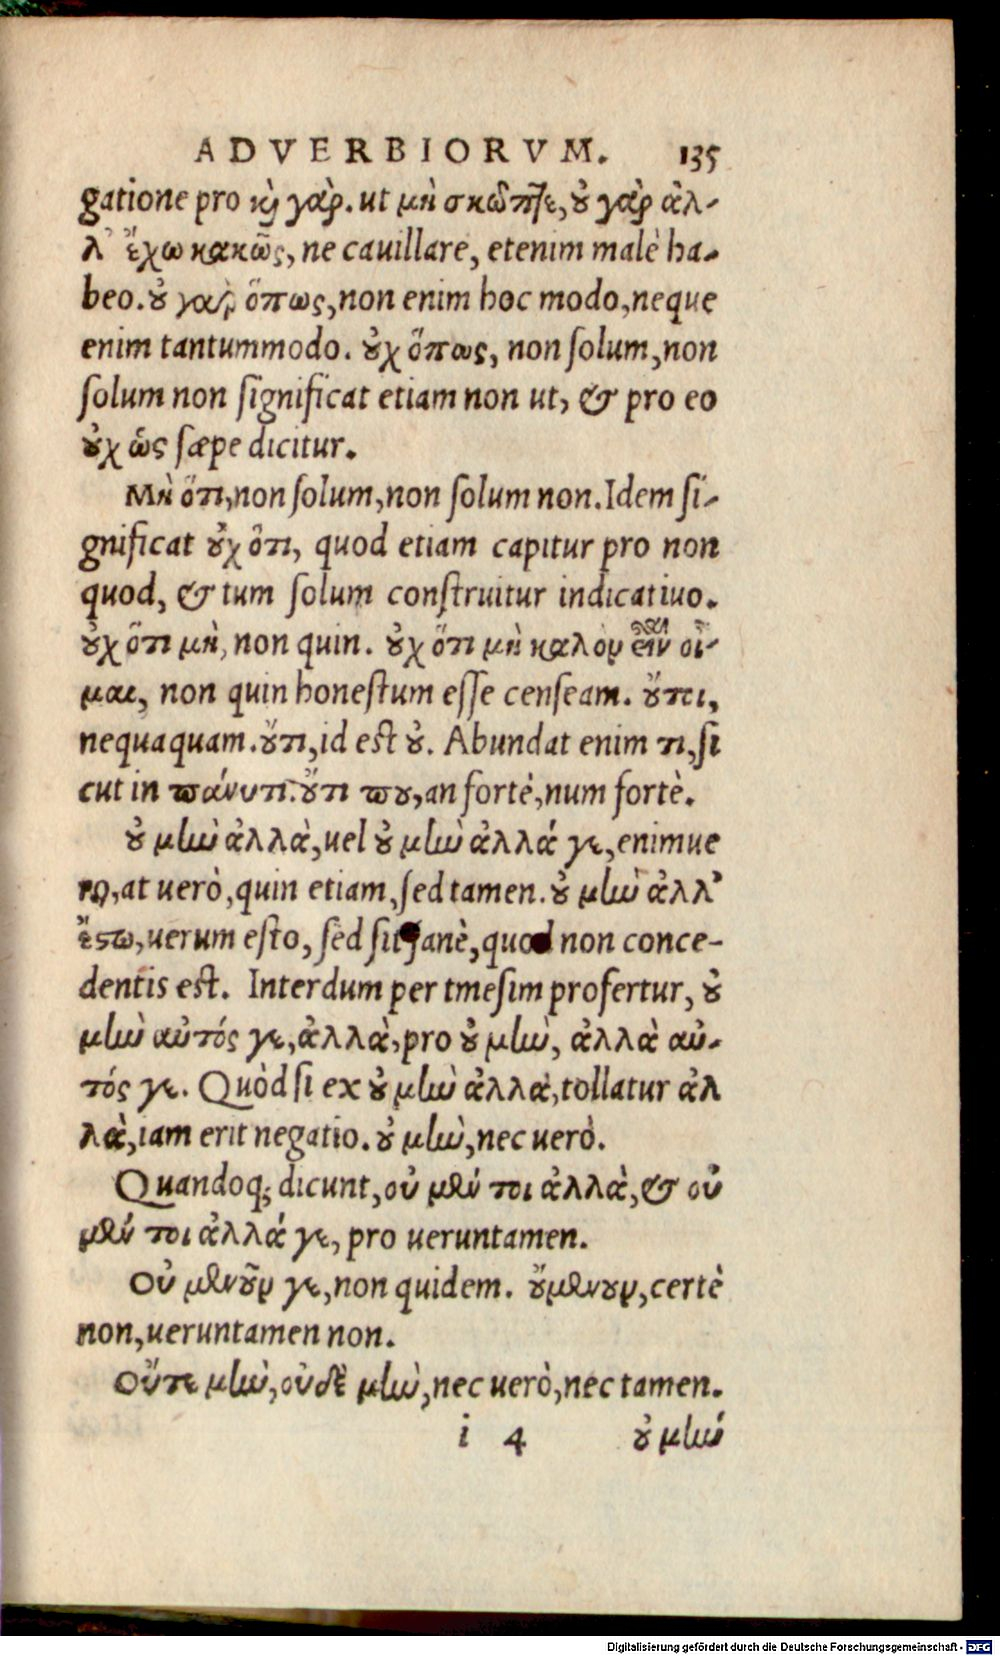 ADVERBIORVM. 135
gatione pro καὶ γὰρ. ut μὴ σκῶπτε, οὐ γὰρ ἀλ-
λ' ἔχω κακῶς, ne cauillare, etenim malè ha-
beo. οὐ γὰρ ὅπως, non enim hoc modo, neque
enim tantummodo. οὐχ ὅπως, non ſolum, non
ſolum non ſignificat etiam non ut, & pro eo
οὐχ ὡς ſæpe dicitur.
Μὴ ὅτι, non ſolum, non ſolum non. Idem ſi-
gnificat οὐχ ὅτι, quod etiam capitur pro non
quod, & tum ſolum conſtruitur indicatiuo.
οὐχ ὅτι μὴ, non quin. οὐχ ὅτι μὴ καλὸν οἶ-
μαι, non quin honeſtum eſſe cenſeam. οὔτι,
nequaquam. οὔτι, id eſt οὐ. Abundat enim τι, ſi
cut in πάνυτι. οὔτι που, an fortè, num fortè.
οὐ μὴν ἀλλὰ, uel οὐ μὴν ἀλλά γε, enimue
ro, at uerò, quin etiam, ſed tamen. οὐ μὴν ἀλλ'
ἔστω, uerum eſto, ſed ſit ſanè, quod non conce-
dentis eſt. Interdum per tmeſim profertur, οὐ
μὴν αὐτός γε, ἀλλὰ, pro οὐ μὴν, ἀλλὰ αὐ-
τός γε. Quòd ſi ex οὐ μὴν ἀλλὰ, tollatur ἀλ
λὰ, iam erit negatio. οὐ μὴν, nec uerò.
Quandoq; dicunt, οὐ μέν τοι ἀλλὰ, & οὐ
μέν τοι ἀλλά γε, pro ueruntamen.
Οὐ μενοῦν γε, non quidem. οὔμενουν, certè
non, ueruntamen non.
Οὔτε μὴν, οὐδὲ μὴν, nec uerò, nec tamen.
i 4 οὐ μήν
Digitalisierung gefördert durch die Deutsche Forschungsgemeinschaft - DFG